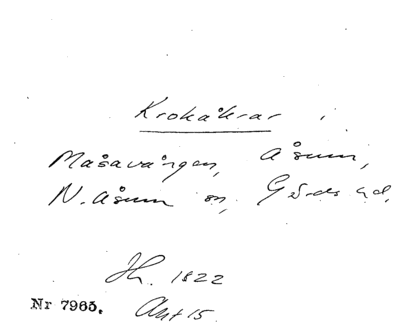 Krokåkrar i
Måsavången, Åsum,
N. Åsum sn, Gärds hd,
Jh. 1822
Nr 7965. Akt 15.